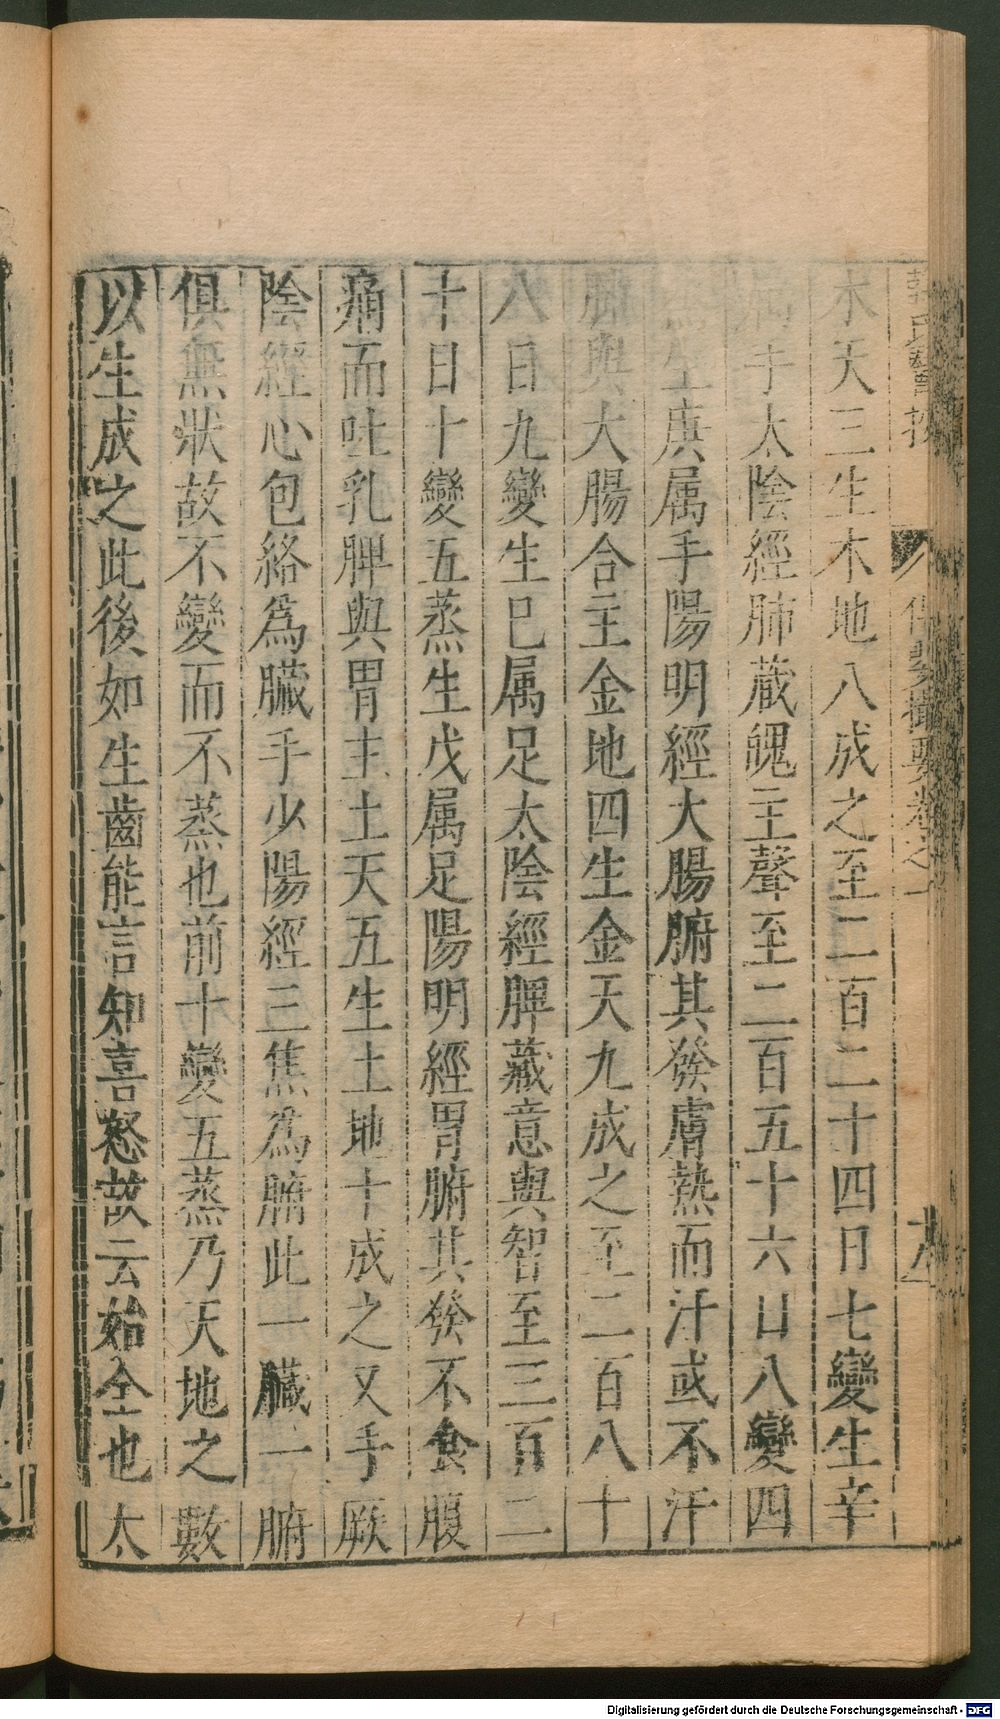 木天三生木地八成之至二百二十四日七變生辛
屬手太陰經肺蔵魄主聲至二百五十六日八變四
蒸生庚属手陽明經大腸腑其發膚熱而汗或不汗
肺與大腸合主金地四生金天九成之至二百八十
八日九變生巳属足太陰經脾藏意與智至三百二
十日十變五蒸生戊属足陽明經胃腑其發不食腹
痛而吐乳脾與胃主土天五生土地十成之又手厥
陰經心包絡爲臓手少陽經三焦爲腑此一臓一腑
俱無狀故不變而不蒸也前十變五蒸乃天地之數
以生成之此後如生齒能言知喜怒故云始全也太
保嬰撮要卷之一
Digitalisierung gefördert durch die Deutsche Forschungsgemeinschaft - DFG